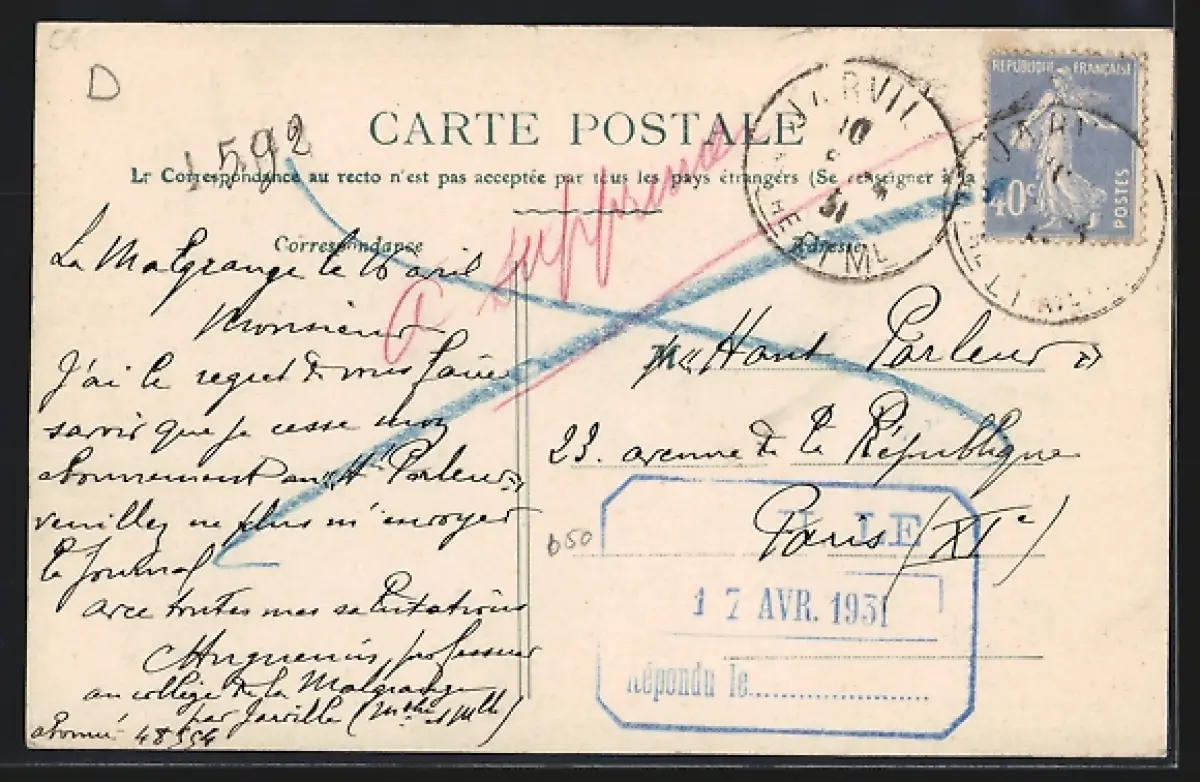 D
1592
CARTE POSTALE
La Correspondance au recto n'est pas acceptée par tous les pays étrangers (Se renseigner à la
Correspondance
Adresse
à supprimer
La Malgrange le 16 avril
Monsieur
J'ai le regret de vous faire
savoir que je cesse mon
abonnement au "Ht Parleur"
veuillez ne plus m'envoyer
le journal
avec toutes mes salutations
Huguenin, professeur
au collège de la Malgrange
par Jarville (Mthe et Mlle)
abonné 48554
RÉPUBLIQUE FRANÇAISE
40c
POSTES
JARVIL
10
31
THE ET ML
JARV
« Haut Parleur »
23. avenue de la République
Paris (XIe)
650
LE
17 AVR. 1931
Répondu le